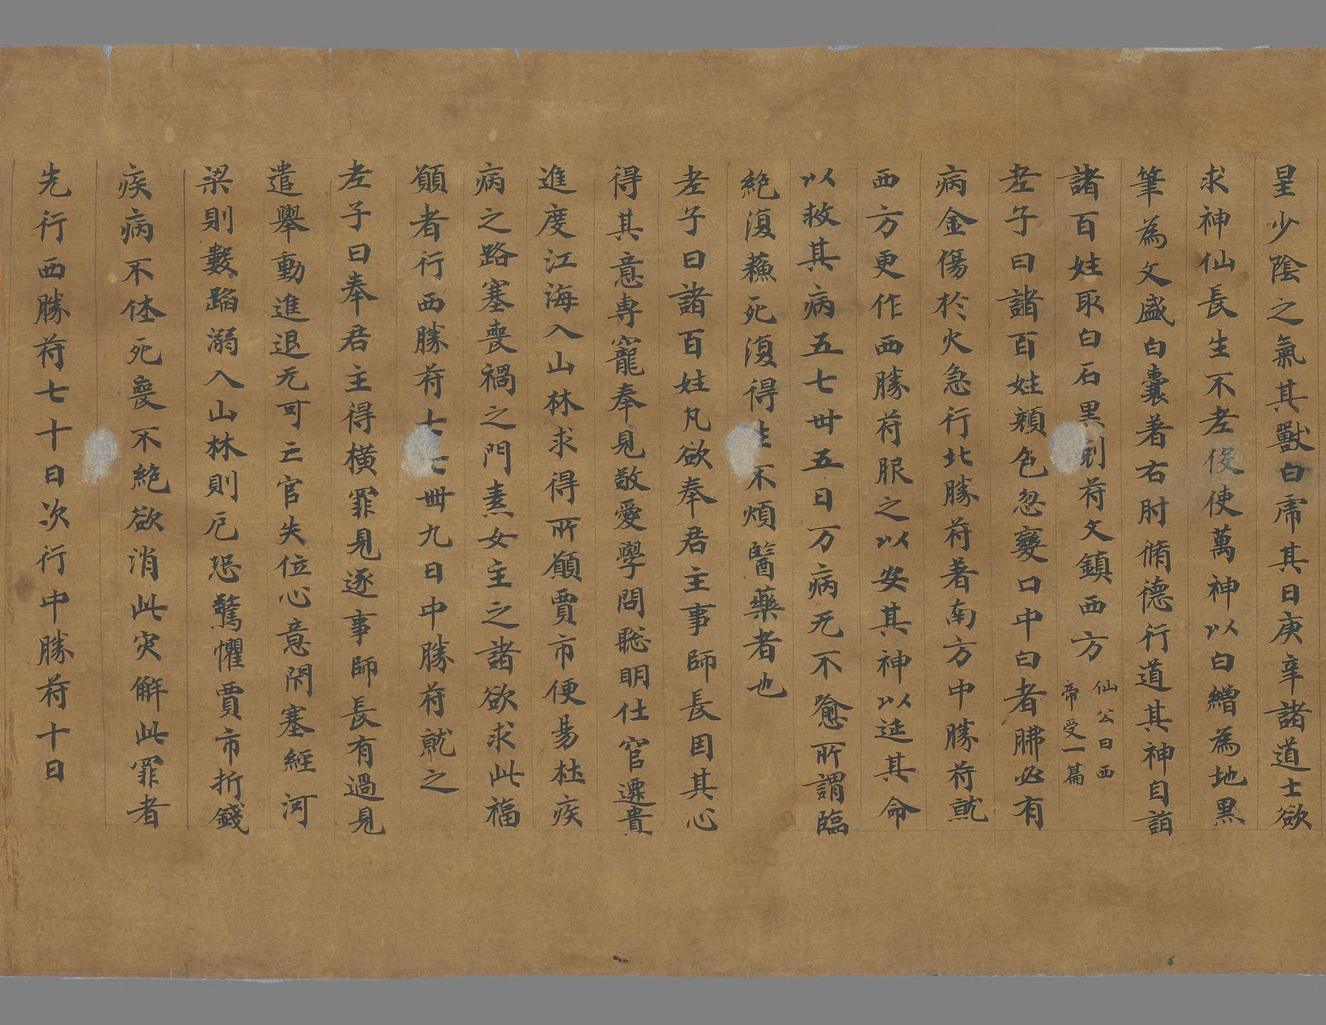 星少陰之氣其獸白乕其日庚辛諸道士欲
求神仙長生不老役使萬神以白繒為地黑
筆為文盛白囊著右肘脩德行道其神自詣
諸百姓取白石黑刻苻文鎮西方
仙公曰西
帝受一篇
老子曰諸百姓顏色忽變口中白者肺必有
病金傷於火急行北勝苻著南方中勝苻就
西方更作西勝苻服之以安其神以延其命
以救其病五七卅五日万病无不愈所謂臨
絶復蘇死復得生不煩醫藥者也
老子曰諸百姓凡欲奉君主事師長因其心
得其意専寵奉見敬愛學問聡明仕官遷貴
進度江海入山林求得所願賈市便易杜疾
病之路塞喪禍之門素女主之諸欲求此福
願者行西勝苻七七卌九日中勝苻就之
老子曰奉君主得橫罪見逐事師長有過見
遣舉動進退无可亡官失位心意閇塞經河
梁則數蹈溺入山林則厄恐驚懼賈市折錢
疾病不住死喪不絶欲消此灾解此罪者
先行西勝苻七十日次行中勝苻十日